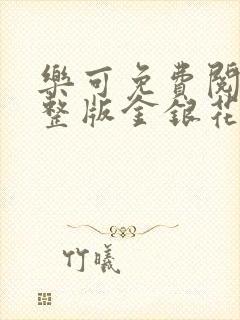 樂可免費閱
整版金銀花
竹曦